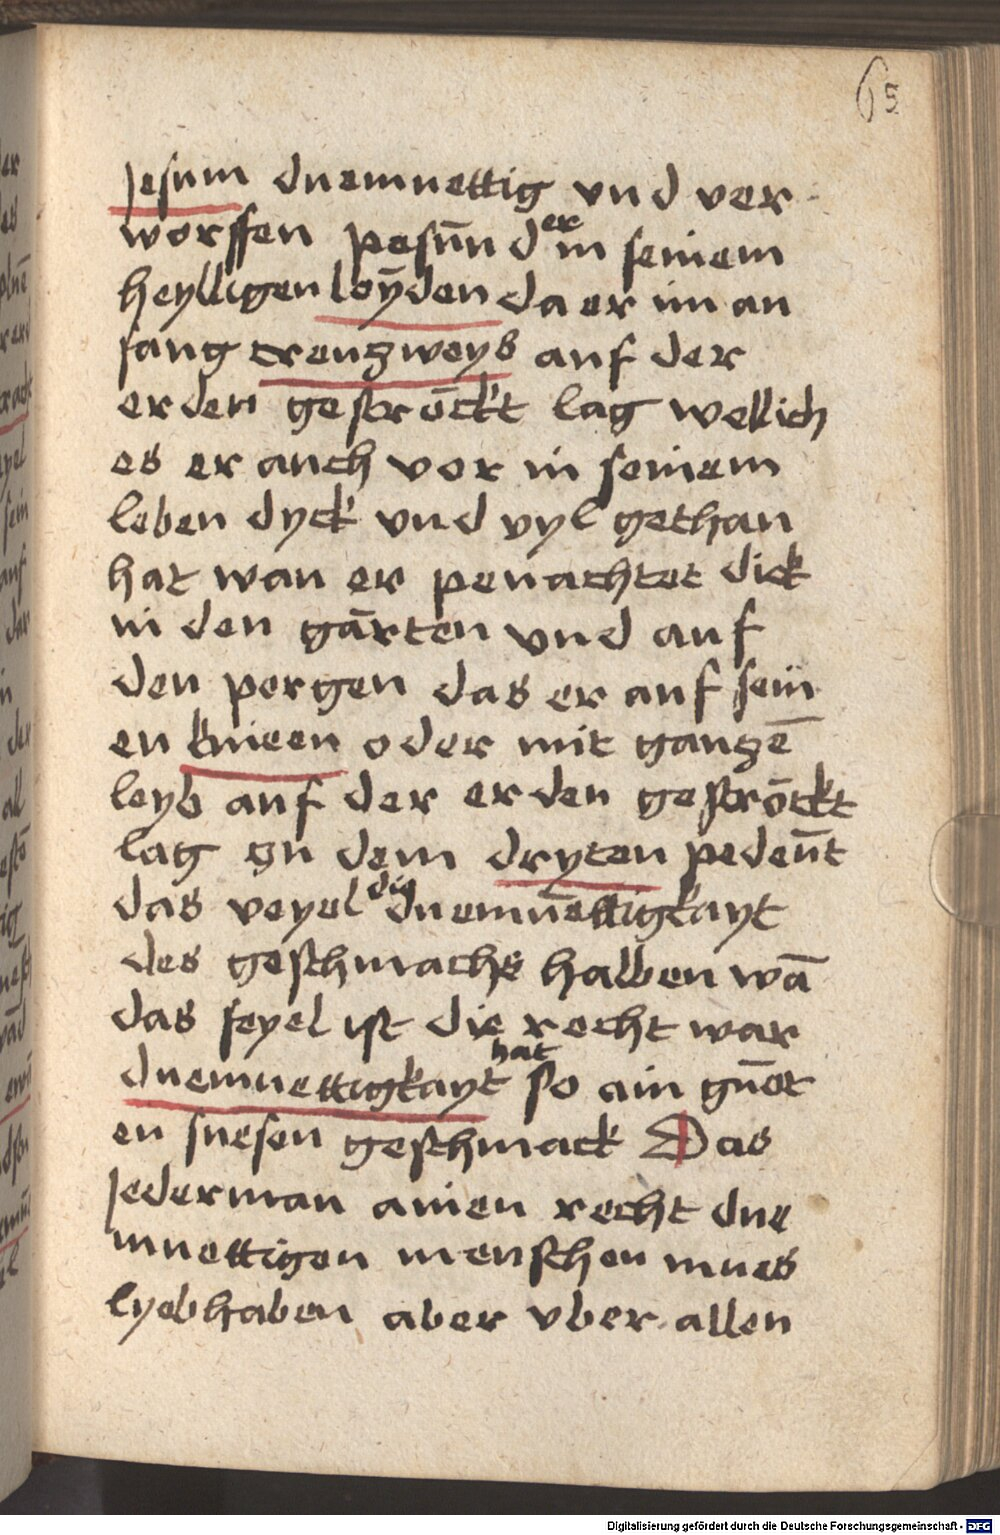 65
Jesum duemuettig vnd ver
worffen pesūnd er in seinem
heylligen loӯden da er im an
fang creuczweys auf der
erden gestrōckt lag wellich
es er auch vor in seinem
leben dyck vnd vyl gethan
hat wan er penachtet dick
in den gārten vnd auf
den pergen das er auf sein
en knieen oder mit ganczē
leyb auf der erden gestrōckt
lag zu dem dryten pedeūt
das veyel die duemūettigkayt
des geschmachs halben wā
das feyel ist die recht war
duemuettigkayt hat so ain gūot
en suesen geschmack Das
Jederman ainen recht due
muettigen menschen mues
lyebhaben aber vber allen
Digitalisierung gefördert durch die Deutsche Forschungsgemeinschaft - DFG